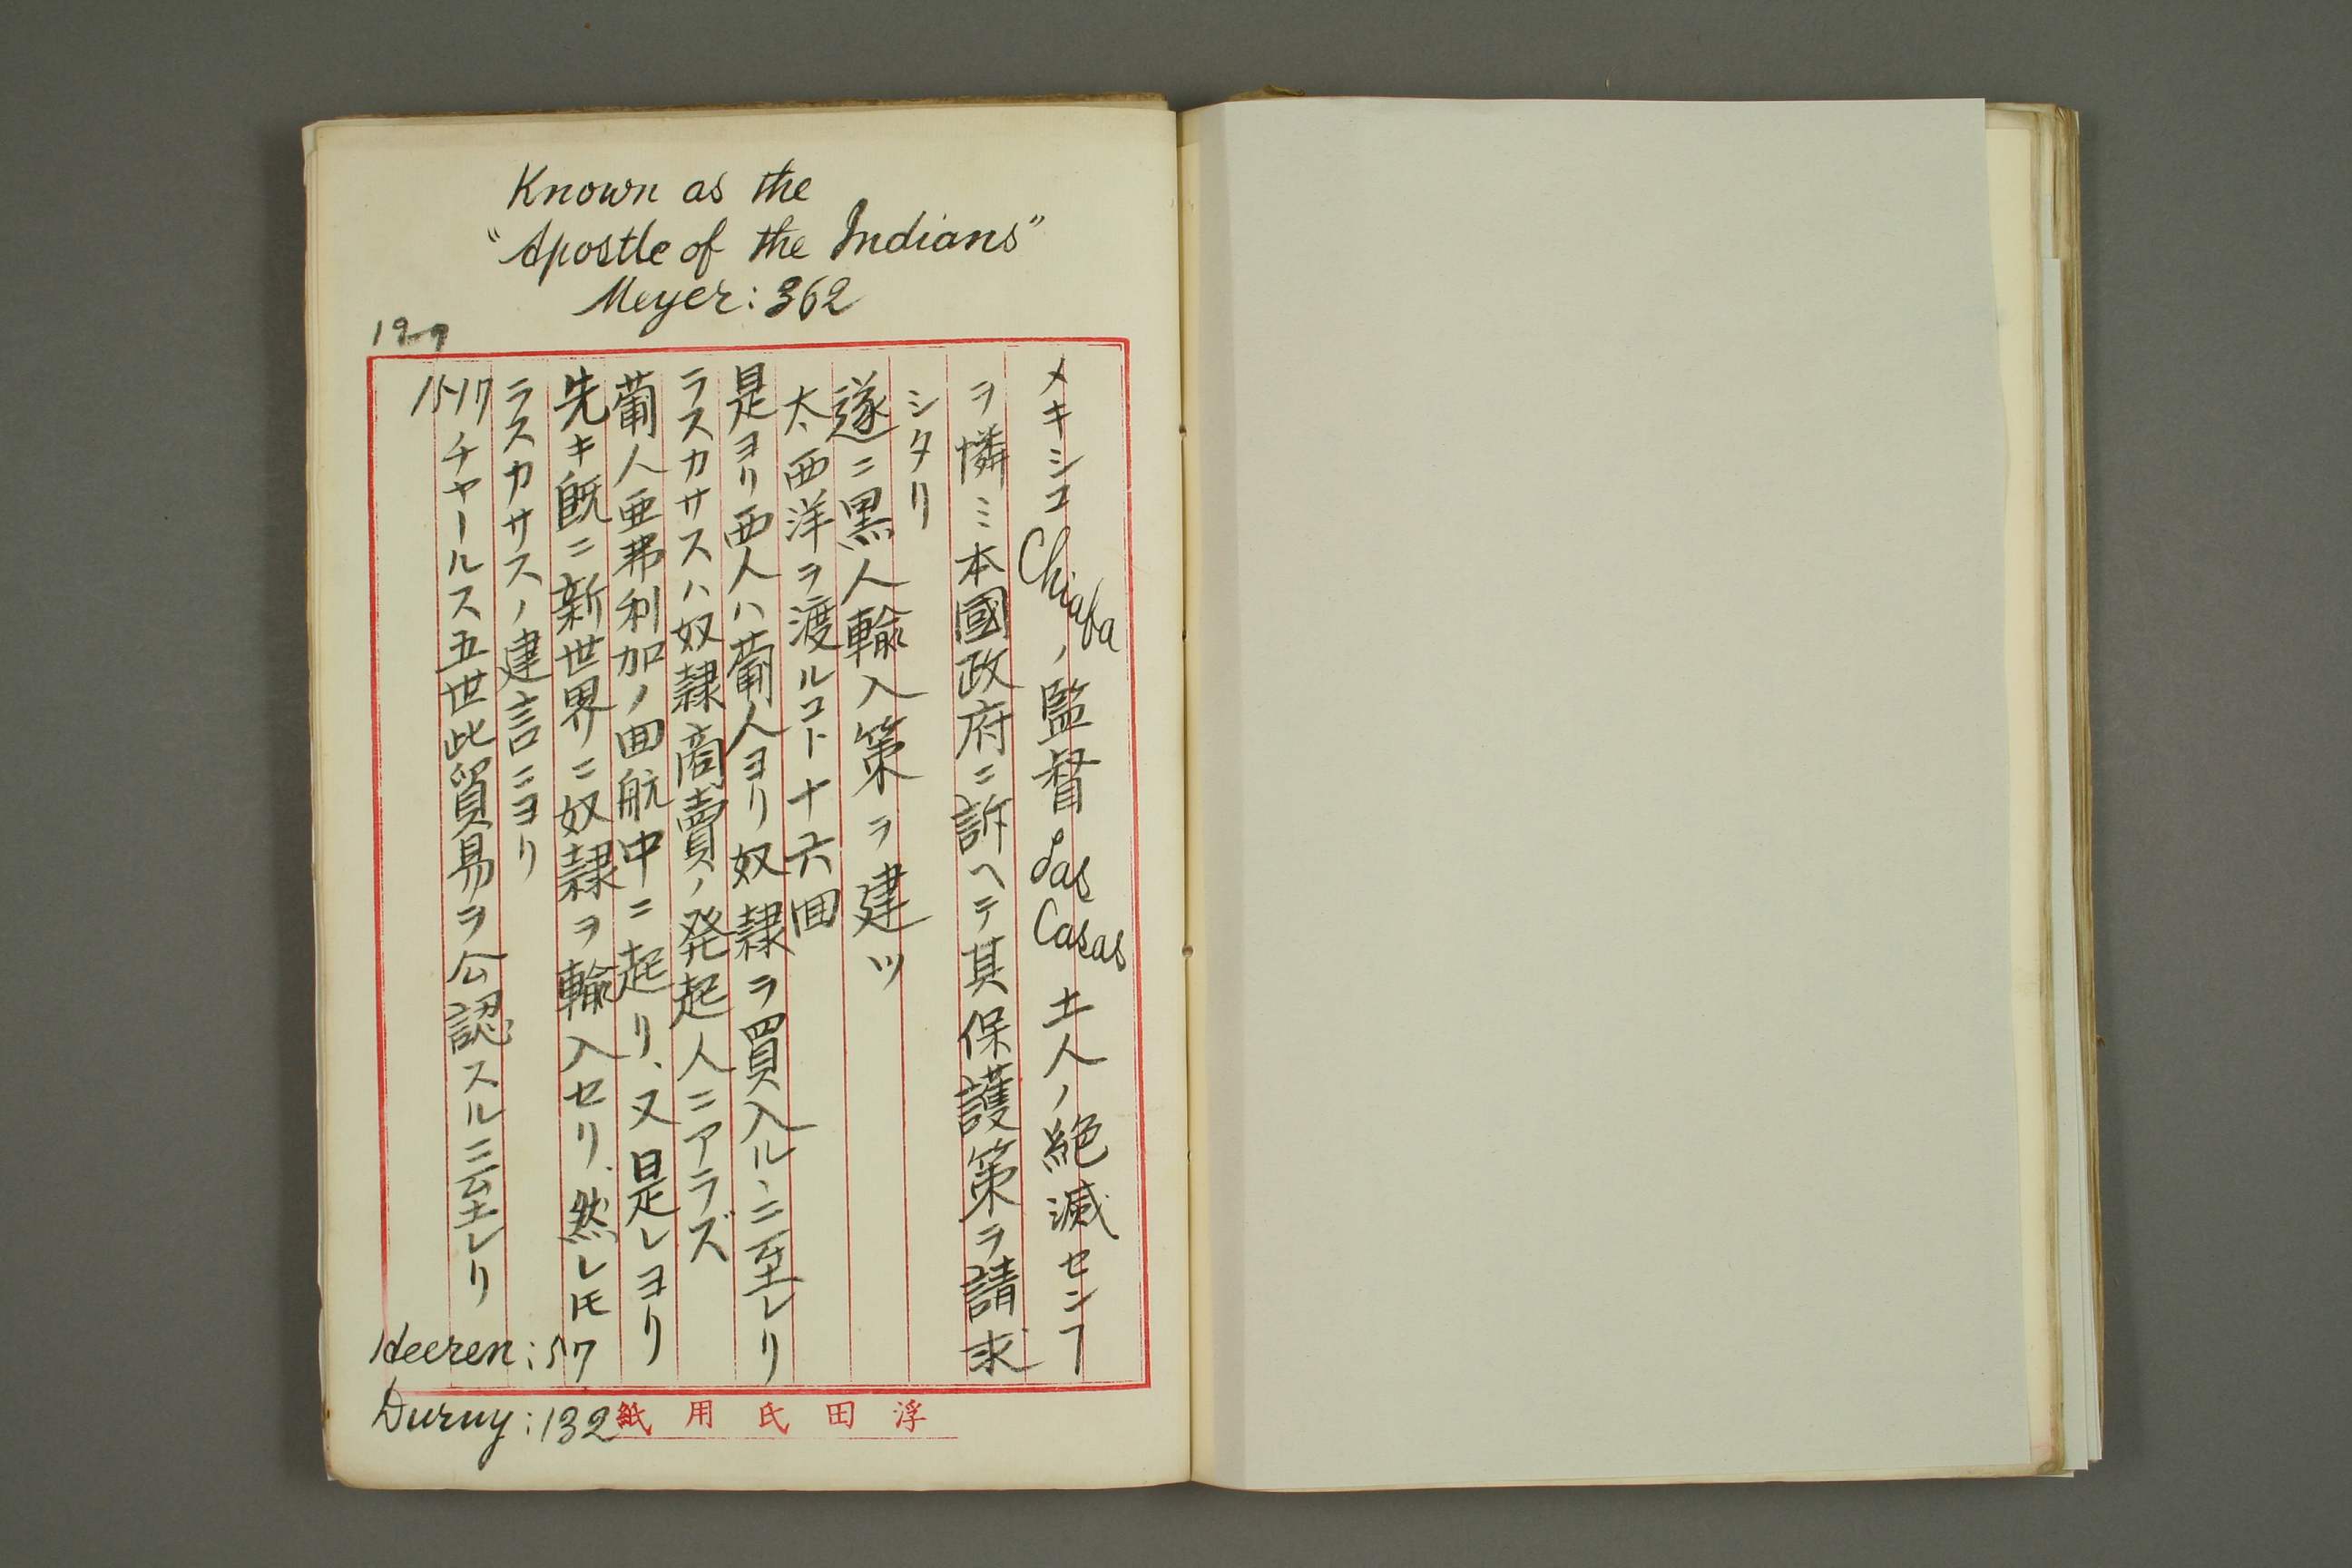 Known as the
"Apostle of the Indians"
Meyer: 362
メキシコ Chiapa ノ監督 Las Casas 土人ノ絶滅センヿ
ヲ憐ミ本國政府ニ訴ヘテ其保護策ヲ請求
シタリ
遂ニ黒人輸入策ヲ建ツ
太西洋ヲ渡ルコト十六回
是ヨリ西人ハ葡人ヨリ奴隷ヲ買入ルヽニ至レリ
ラスカサスハ奴隷商賣ノ発起人ニアラズ
葡人亜弗利加ノ回航中ニ起リ、又是レヨリ
先キ既ニ新世界ニ奴隷ヲ輸入セリ、然レㇳモ
ラスカサスノ建言ニヨリ
1517 チャールス五世此貿易ヲ公認スルニ至レリ
Heeren: 57
Duruy: 132
浮田氏用紙